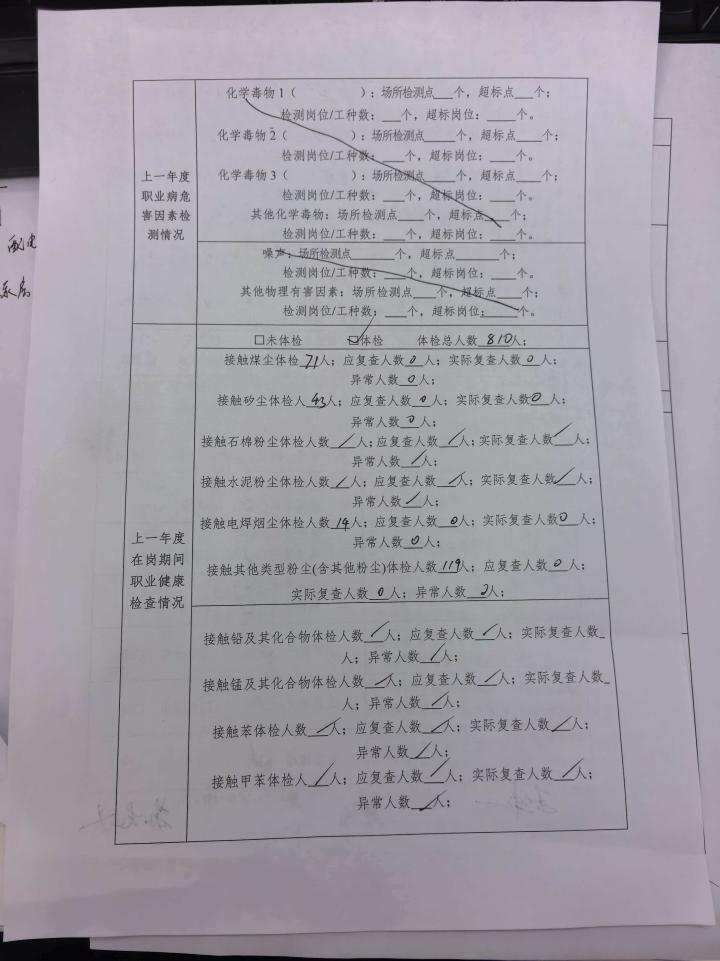 上一年度
职业病危
害因素检
测情况
化学毒物1（ ）：场所检测点___个，超标点___个；
检测岗位/工种数：___个，超标岗位：____个。
化学毒物2（ ）：场所检测点____个，超标点___个；
检测岗位/工种数：___个，超标岗位：____个。
化学毒物3（ ）：场所检测点____个，超标点___个；
检测岗位/工种数：___个，超标岗位：____个。
其他化学毒物：场所检测点____个，超标点____个；
检测岗位/工种数：___个，超标岗位：____个。
噪声：场所检测点_______个，超标点_______个；
检测岗位/工种数：___个，超标岗位：____个。
其他物理有害因素：场所检测点___个，超标点____个；
检测岗位/工种数：___个，超标岗位：_____个。
上一年度
在岗期间
职业健康
检查情况
☐未体检 ☑体检 体检总人数 810人；
接触煤尘体检 71人；应复查人数 0 人；实际复查人数 0 人；
异常人数 0 人；
接触矽尘体检人 43人；应复查人数 0 人；实际复查人数 0 人；
异常人数 0 人；
接触石棉粉尘体检人数 / 人；应复查人数 / 人；实际复查人数 / 人；
异常人数 / 人；
接触水泥粉尘体检人数 / 人；应复查人数 / 人；实际复查人数 / 人；
异常人数 / 人；
接触电焊烟尘体检人数 14人；应复查人数 0人；实际复查人数 0 人；
异常人数 0 人；
接触其他类型粉尘(含其他粉尘)体检人数 119人；应复查人数 0 人；
实际复查人数 0 人；异常人数 2人；
接触铅及其化合物体检人数 / 人；应复查人数 / 人；实际复查人数_
人；异常人数 / 人；
接触锰及其化合物体检人数 / 人；应复查人数 / 人；实际复查人数_
人；异常人数 / 人；
接触苯体检人数 / 人；应复查人数 / 人；实际复查人数 / 人；
异常人数 / 人；
接触甲苯体检人 / 人；应复查人数 / 人；实际复查人数 / 人；
异常人数 / 人；